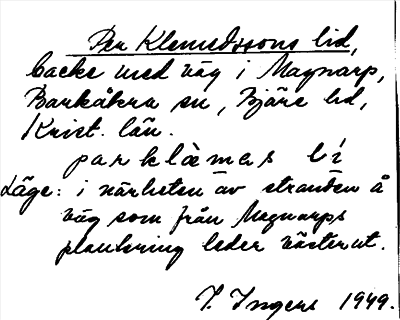 Per Klemedssons lid,
backe med väg i Magnarp,
Barkåkra sn, Bjäre hd,
Krist. län.
parklæmas li
Läge: i närheten av stranden å
väg som från Magnarps
plantering leder västerut.
I. Ingers 1949.